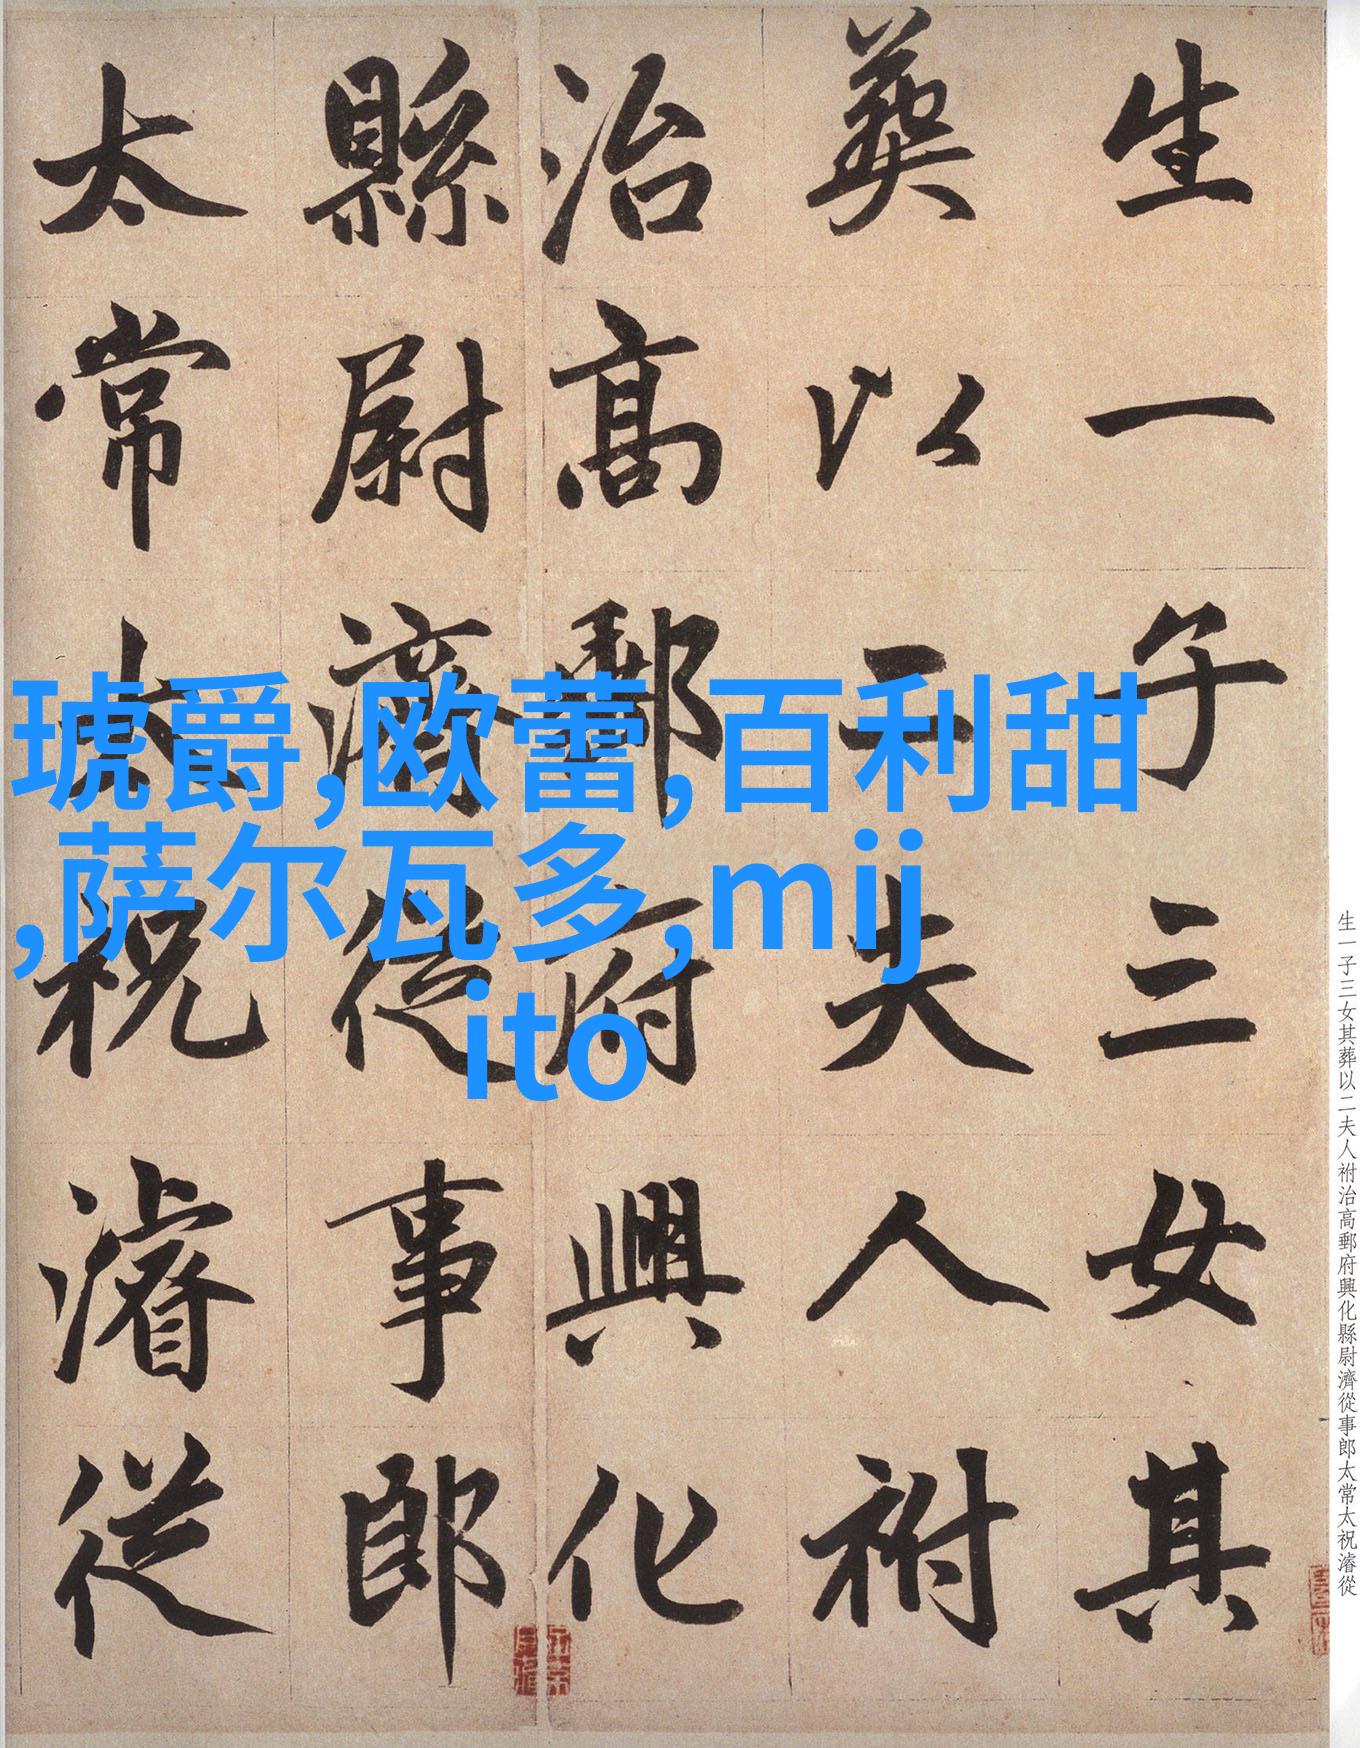 生一子三女其
葬以二夫人祔
治高郵府興化
縣尉濟從事郎
太常太祝濬從
琥爵,欧蕾,百利甜
,萨尔瓦多,mij
ito
生一子三女其葬以二夫人祔治高郵府興化縣尉濟從事郎太常太祝濬從